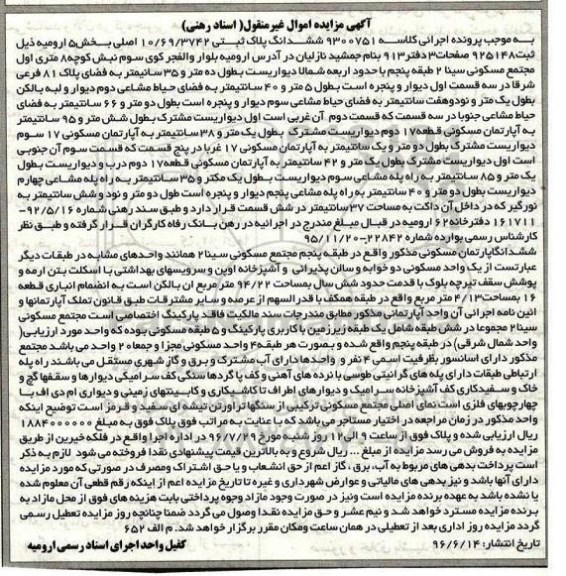 آگهی مزایده اموال غیرمنقول( اسناد رهنی)
به موجب پرونده اجرائی کلاسه ۹۳۰۰۷۵۱ ششدانگ پلاک ثبتی ۱۰/۶۹/۳۷۴۲ اصلی بخش۵ ارومیه ذیل
ثبت۹۲۵۱۴۸ صفحات۳دفتر۹۱۳ بنام جمشید نازلیان در آدرس ارومیه بلوار والفجر کوی سوم نبش کوچه۸ متری اول
مجتمع مسکونی سینا ۲ طبقه پنجم با حدود اربعه شمالا دیواریست بطول ده متر و ۳۵ سانیمتر به فضای پلاک ۸۱ فرعی
شرقا در سه قسمت اول دیوار و پنجره است بطول ۵ متر و ۴۰ سانتیمتر به فضای حیاط مشاعی دوم دیوار و لبه بالکن
بطول یک متر و نودوهفت سانتیمتر به فضای حیاط مشاعی سوم دیوار و پنجره است بطول دو متر و ۶۶ سانتیمتر به فضای
حیاط مشاعی جنوبا در سه قسمت که قسمت دوم آن غربی است اول دیواریست مشترک بطول شش متر و ۹۵ سانتیمتر
به آپارتمان مسکونی قطعه۱۷ دوم دیواریست مشترک بطول یک متر و ۳۸ سانتیمتر به آپارتمان مسکونی ۱۷ سوم
دیواریست مشترک بطول دو متر و یک سانتیمتر به آپارتمان مسکونی ۱۷ غربا در پنج قسمت که قسمت سوم آن جنوبی
است اول دیواریست مشترک بطول یک متر و ۴۲ سانتیمتر به آپارتمان مسکونی قطعه۱۷ دوم درب و دیواریست بطول
یک متر و ۸۵ سانتیمتر به راه پله مشاعی سوم دیواریست بطول یک مکتر و ۳۵ سانتیمتر به راه پله مشاعی چهارم
دیواریست بطول دو متر و ۴۰ سانتیمتر به راه پله مشاعی پنجم دیوار و پنجره است طول دو متر و نود و شش سانتیمتر به
نورگیر که در داخل آن داکت به مساحت ۳۷سانتیمتر در شش قسمت قرار دارد و طبق سند رهنی شماره ۹۲/۵/۱۶-
۱۶۱۷۱۱ دفترخانه۶۲ ارومیه در قبال مبلغ مندرج در اجرائیه در رهن بانک رفاه کارگران قرار گرفته و طبق نظر
کارشناس رسمی بوارده شماره ۲۲۸۴۲-۹۵/۱۱/۲۰
ششدانگاپارتمان مسکونی مذکور واقع در طبقه پنجم مجتمع مسکونی سینا۲ همانند واحدهای مشابه در طبقات دیگر
عبارتست از یک واحد مسکونی دو خوابه و سالن پذیرائی و آشپزخانه اوپن و سرویسهای بهداشتی با اسکلت بتن ارمه و
پوشش سقف تیرچه بلوک با قدمت حدود شش سال بمساحت ۹۴/۲۲ متر مربع ان بالکن است به انضمام انباری قطعه
۱۶ بمساحت۴/۱۳ متر مربع واقع در طبقه همکف با قدرالسهم از عرصه و سایر مشترقات طبق قانون تملک آپارتمانها و
ائین نامه اجرائی آن واحد آپارتمانی مذکور مطابق مندرجات سند مالکیت فاقد پارکینگ اختصاصی است مجتمع مسکونی
سینا۲ مجموعا در شش طبقه شامل یک طبقه زیرزمین با کاربری پارکینگ و ۵ طبقه مسکونی بوده که واحد مورد ارزیابی(
واحد شمال شرقی) در طبقه پنجم واقع شده و بصورت هر طبقه۴ واحد مسکونی مجزا و جمعاه ۲ واحد می باشد مجتمع
مذکور دارای اسانسور بظرفیت اسمی ۴ نفر و واحدها دارای آب مشترک و برق و گاز شهری مستقل می باشند راه پله
ارتباطی طبقات دارای پله های گرانیتی طوسی با نرده های آهنی و کف پا گردها سنگی کف سرامیکی دیوارها و سقفها گچ و
خاک و سفیدکاری کف آشپزخانه سرامیک و دیوارهای اطراف تا کاشیکاری و کابینتهای زمینی و دیواری ام دی اف با
چهارچوبهای فلزی است نمای اصلی مجتمع مسکونی ترکیبی از سنگها تراورتن تیشه ای سفید و قرمز است توضیح اینکه
واحد مذکور در زمان مراجعه در اختیار مستاجر می باشد که با عنایت به مراتب فوق پلاک فوق به مبلغ ۱۸۸۴۰۰۰۰۰۰
ریال ارزیابی شده و پلاک فوق از ساعت ۹ الی۱۲ روز شنبه مورخ ۹۶/۷/۲۹ در اداره اجرا واقع در فلکه خیرین از طریق
مزایده به فروش می رسد مزایده از مبلغ ... ریال شروع و به بالاترین قیمت پیشنهادی نقدا فروخته می شود لازم به ذکر
است پرداخت بدهی های مربوط به آب، برق ، گاز اعم از حق انشعاب و یا حق اشتراک ومصرف در صورتی که مورد مزایده
دارای آنها باشد و نیز بدهی های مالیاتی و عوارض شهرداری و غیره تا تاریخ مزایده اعم از اینکه رقم قطعی آن معلوم شده
یا نشده باشد به عهده برنده مزایده است ونیز در صورت وجود مازاد وجوه پرداختی بابت هزینه های فوق از محل مازاد به
برنده مزایده مسترد خواهد شد و نیم عشر و حق مزایده نقدا وصول می گردد ضمنا چنانچه روز مزایده تعطیل رسمی
گردد مزایده روز اداری بعد از تعطیلی در همان ساعت ومکان مقرر برگزار خواهد شد. م الف ۶۵۲
تاریخ انتشار: ۹۶/۶/۱۴ کفیل واحد اجرای اسناد رسمی ارومیه